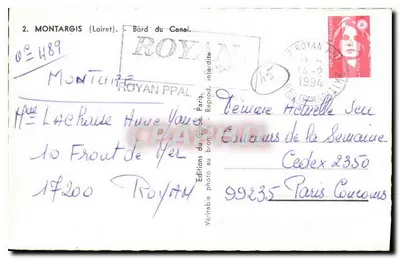 2. MONTARGIS (Loiret). - Bord du Canal.
n° 489
MONTUIRE
ROYAN
ROYAN PPAL
1994
45
Mme LACHERISE Anne Marie
10 Front de Mer
17200 ROYAN
Editions du Globe, Paris.
Véritable photo au bromure - Reprod. interdite
Femme Actuelle Jeu
Concours de la Semaine
Cedex 2350
99235 Paris Concours